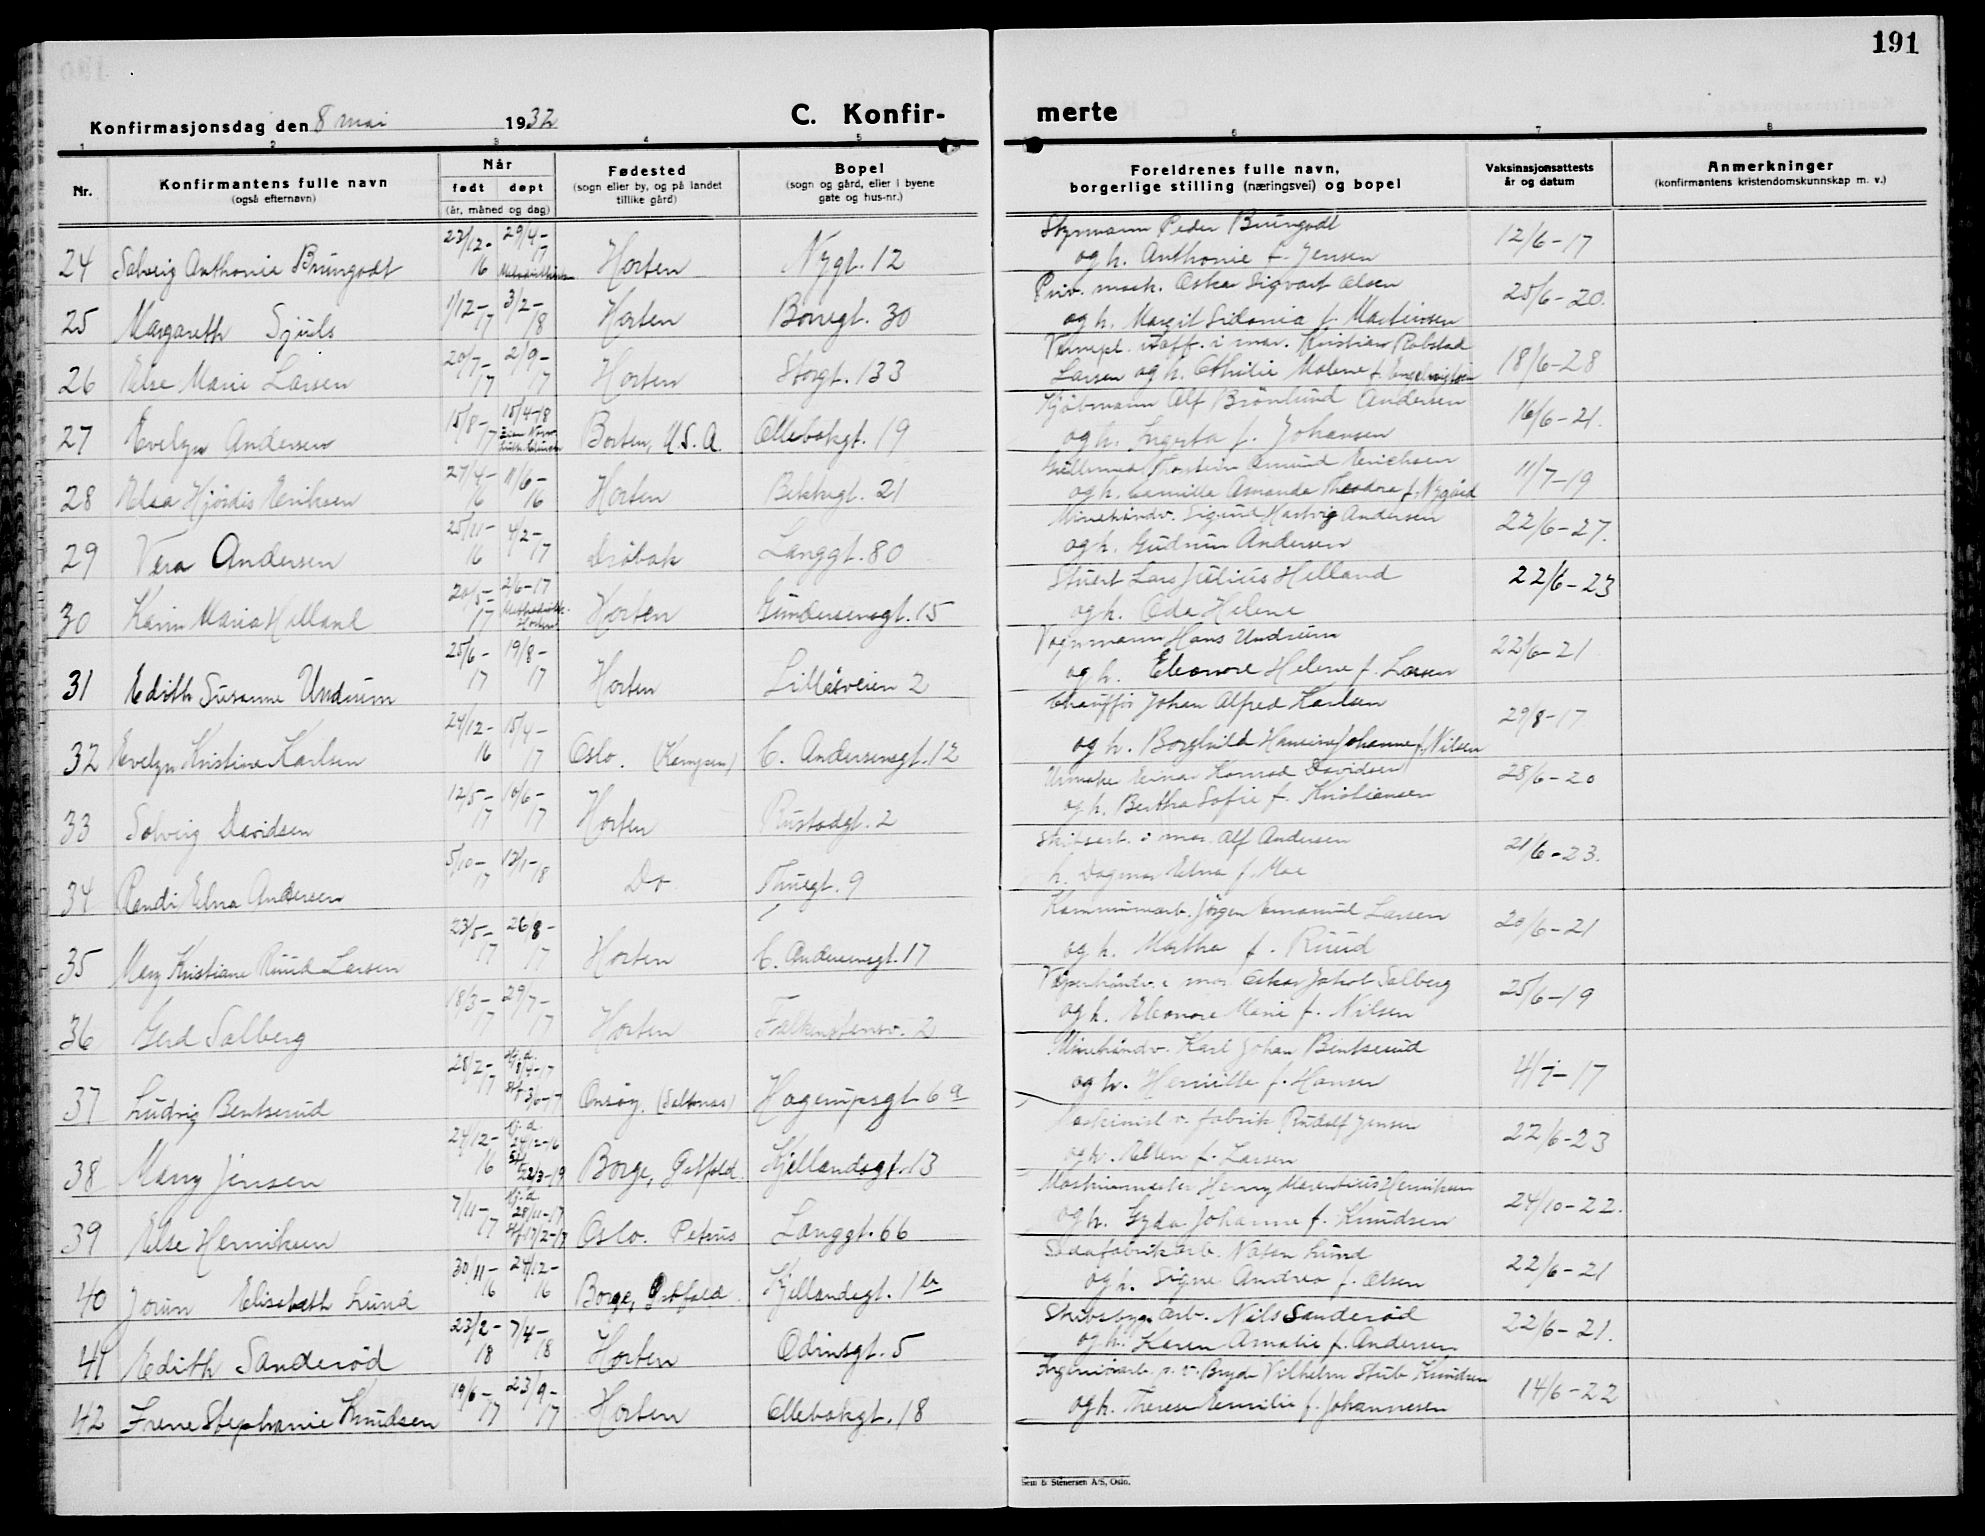 191
Konfirmasjonsdag den 8 mai 1932
C. Konfir-
merte
1 2 3 4 5 6 7 8
Nr.
Konfirmantens fulle navn
(også efternavn)
Når
født døpt
(år, måned og dag)
Fødested
(sogn eller by, og på landet
tillike gård)
Bopel
(sogn og gård, eller i byene
gate og hus-nr.)
Foreldrenes fulle navn,
borgerlige stilling (næringsvei) og bopel
Vaksinasjonsattests
år og datum
Anmerkninger
(konfirmantens kristendomskunnskap m. v.)
24 Solveig Anthonie Brungodt 23/12-16 29/4-17 Horten Nygt. 12
Styrmann Peder Brungodt
og h. Anthonie f. Jensen 12/6-17
25 Margareth Sjuls 1/12-17 3/2-18 Horten Borregt. 30
Priv. mask. Oskar Sigvart Olsen
og h. Margit Sidonia f. Martinsen 25/6-20.
26 Else Marie Larsen 20/7-17 2/9-17 Horten Storgt. 133
Vernepl. uoff. i mar. Kristian Robstad
Larsen og h. Othilie Malene f. 18/6-28
27 Evelyn Andersen 15/8-17 15/4-18 Borten, U.S.A. Ollebakgt. 19
Kjøbmann Alf Brönlund Andersen
og h. Ingerta f. Johansen 16/6-21.
28 Elsa Hjördis Eriksen 27/4-16 11/6-16 Horten Bekkegt. 21
Thorstein Amund Erichsen
og h. Camilla Amanda Theodora f. Nygård 11/7-19
29 Vera Andersen 25/11-16 4/2-17 Dröbak Langgt. 80
Minehåndv. Sigurd Hartvig Andersen
og h. Gudrun Andersen 22/6-27.
30 Karin Maria Helland 20/5-17 2/6-17 Methodistk. Horten Horten Gundersensgt. 15
Stuert Lars Julius Helland
og h. Oda Helene 22/6-23
31 Edith Susanne Undrum 25/6-17 19/8-17 Horten Lillåsveien 2
Vognmann Hans Undrum
og h. Eleonore Helene f. Larsen 22/6-21
32 Evelyn Kristine Karlsen 24/12-16 15/4-17 Oslo. (Kampen) C. Andersensgt. 12
Chaufför Johan Alfred Karlsen
og h. Borghild Hansine Johanne f. Nilsen 29/8-17
33 Solveig Davidsen 12/5-17 10/6-17 Horten Rustadgt. 2
Urmaker Einar Konrad Davidsen
og h. Bertha Sofie f. Kristiansen 28/6-20
34 Randi Elna Andersen 5/10-17 13/1-18 Do. Thuegt. 9
Skibsarb. i mar. Alf Andersen
h. Dagmar Elna f. Moe 21/6-23.
35 Mary Kristiane Ruud Larsen 23/5-17 26/8-17 Horten C. Andersensgt. 17
Kommunearb. Jörgen Emanuel Larsen
og h. Martha f. Ruud 20/6-21
36 Gerd Solberg 18/3-17 29/7-17 Horten Falkenstensv. 2
Våpenhåndv. i mar. Oskar Jakob Solberg
og h. Eleonore Marie f. Nilsen 25/6-19
37 Ludvig Bentserud 28/2-17 Hj.d. 8/4-17 St.f. 3/6-17 Onsöy. (Saltnes) Hagerupsgt. 6 a
Minehåndv. Karl Johan Bentserud
og h. Henriette f. Hansen 4/7-17
38 Mary Jensen 24/12-16 Hj.d. 24/12-16 St.f. 23/3-19 Borge, Østfold. Kjellandsgt. 13
Maskinist v. fabrik Rudolf Jensen
og h. Ellen f. Larsen 22/6-23
39 Else Henriksen 7/11-17 Hj.d. 28/11-17 St.f. 17/2-18 Oslo. Petrus Langgt. 66
Maskinmester Henry Henriksen
og h. Gyda Johanne f. Knudsen 24/10-22.
40 Jorun Elisabeth Lund 30/11-16 24/12-16 Borge, Østfold. Kjellandsgt. 1 b
Sodafabrikarb. Natan Lund
og h. Signe Andrea f. Olsen 22/6-21
41 Edith Sanderöd 23/2-18 7/4-18 Horten Odinsgt. 5
Skibsbygg. arb. Nils Sanderöd
og h. Karen Amalie f. Andersen 22/6-21.
42 Irene Stephanie Knudsen 19/6-17 23/9-17 Horten Ollebakgt. 18
Ingeniörarb. Vilhelm Stub Knudsen
og h. Therese Emilie f. Johannesen 14/6-22
Sem & Stenersen A/S, Oslo.